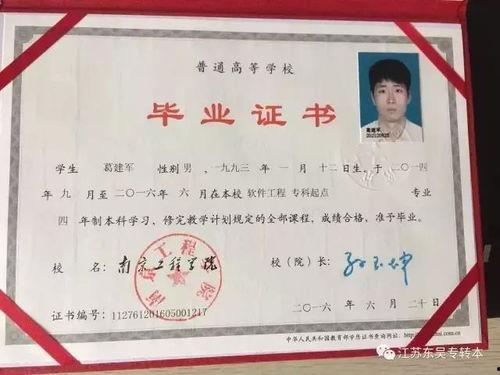 普通高等学校
毕业证书
学生 葛建军 性别 男 ，一九九三年 一月 十二日生，于二〇一四
年 九 月至二〇一六年 六 月在本校 软件工程 专科起点 专业
四 年制本科学习，修完教学计划规定的全部课程，成绩合格，准予毕业。
校 名：南京工程学院 校（院）长：
证书编号：112761201605001217 二〇一六 年 六 月 二十日
中华人民共和国教育部学历证书查询网址：
葛建军
南京工程学院
江苏东吴专转本